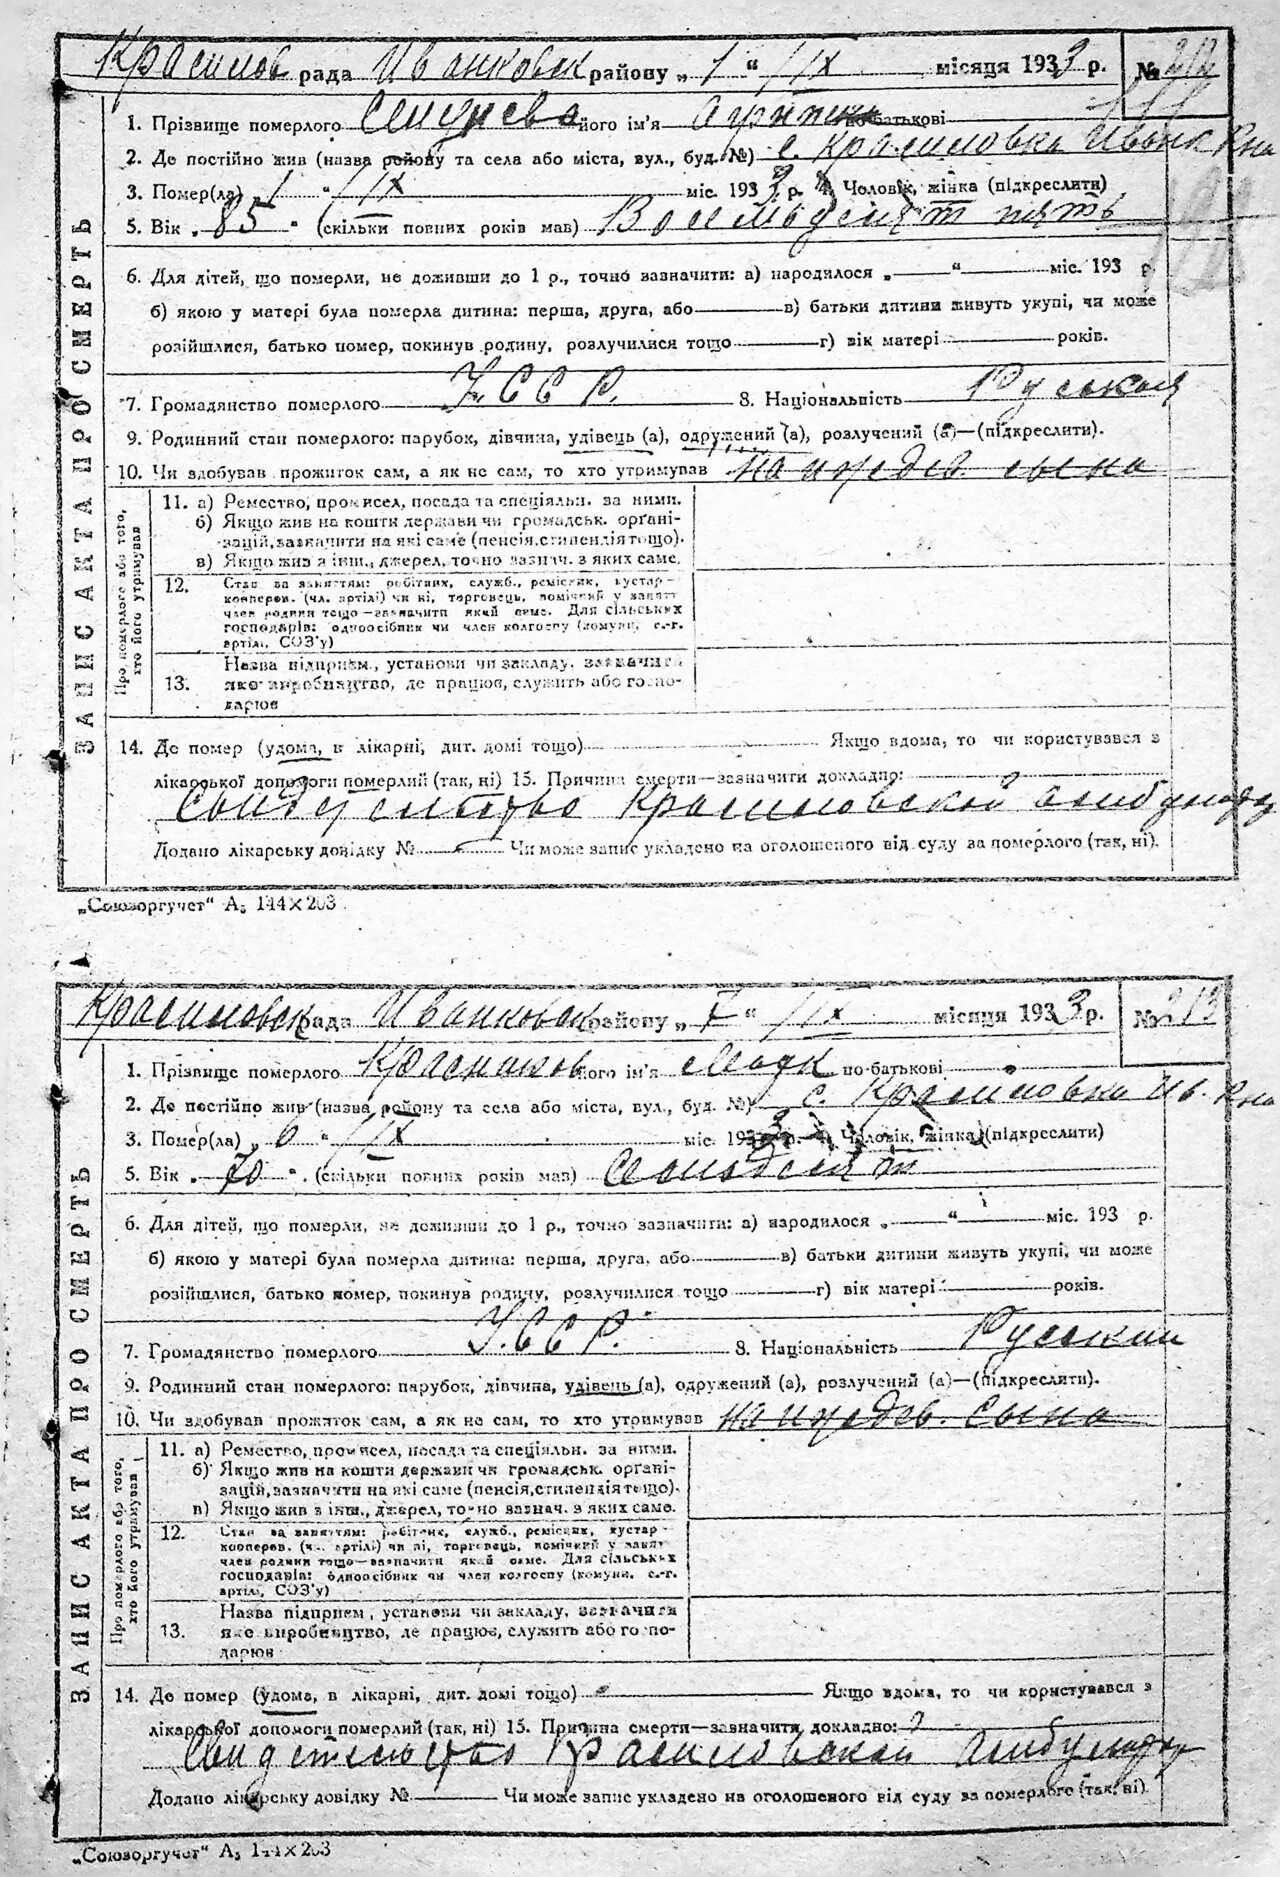 рада Иванковск району „ 1 “ /IX місяця 1933 р. № 212
1. Прізвище померлого його ім'я по-батькові
2. Де постійно жив (назва району та села або міста, вул., буд. №) с. Красиловка Иванк Р-на
3. Помер(ла) „ 1 “ /IX міс. 1933 р. 4. Чоловік, жінка (підкреслити)
5. Вік „ 85 “ (скільки повних років мав) Восемьдесят пять
6. Для дітей, що померли, не доживши до 1 р., точно зазначити: а) народилося „ “ міс. 193 р.
б) якою у матері була померла дитина: перша, друга, або в) батьки дитини живуть укупі, чи може
розійшлися, батько помер, покинув родину, розлучилися тощо г) вік матері років.
7. Громадянство померлого У.С.С.Р. 8. Національність Руская
9. Родинний стан померлого: парубок, дівчина, удівець (а), одружений (а), розлучений (а)—(підкреслити).
10. Чи здобував прожиток сам, а як не сам, то хто утримував на иждев. сына
ЗАПИС АКТА ПРО СМЕРТЬ
Про померлого або того, хто його утримував
11. а) Ремество, промисел, посада та спеціяльн. за ними.
б) Якщо жив на кошти держави чи громадськ. органі-
зацій, зазначити на які саме (пенсія, стипендія тощо).
в) Якщо жив з інш., джерел, точно зазнач. з яких саме.
12. Стан за заняттям: робітник, служб., ремісник, кустар—
кооперов. (чл. артілі) чи ні, торговець, помічний у занятт
член родини тощо—зазначити який саме. Для сільських
господарів: одноосібник чи член колгоспу (комуни, с.-г.
артілі, СОЗ'у)
13. Назва підприєм., установи чи закладу, зазначити
яке виробництво, де працює, служить або госпо-
дарює
14. Де помер (удома, в лікарні, дит. домі тощо) Якщо вдома, то чи користувався з
лікарської допомоги померлий (так, ні) 15. Причина смерти—зазначити докладно:
Красиловской
Додано лікарську довідку № Чи може запис укладено на оголошеного від суду за померлого (так, ні).
„Союзоргучет“ А₅ 144×203
Красиловск рада Иванковск району „ 7 “ /IX місяця 1933 р. № 213
1. Прізвище померлого його ім'я по-батькові
2. Де постійно жив (назва району та села або міста, вул., буд. №) с. Красиловка Ив. Р-на
3. Помер(ла) „ 6 “ /IX міс. 1933 р. 4. Чоловік, жінка (підкреслити)
5. Вік „ 70 “ (скільки повних років мав) Семьдесят
6. Для дітей, що померли, не доживши до 1 р., точно зазначити: а) народилося „ “ міс. 193 р.
б) якою у матері була померла дитина: перша, друга, або в) батьки дитини живуть укупі, чи може
розійшлися, батько помер, покинув родину, розлучилися тощо г) вік матері років.
7. Громадянство померлого У.С.С.Р. 8. Національність Русский
9. Родинний стан померлого: парубок, дівчина, удівець (а), одружений (а), розлучений (а)—(підкреслити).
10. Чи здобував прожиток сам, а як не сам, то хто утримував на иждев. сына
ЗАПИС АКТА ПРО СМЕРТЬ
Про померлого або того, хто його утримував
11. а) Ремество, промисел, посада та спеціяльн. за ними.
б) Якщо жив на кошти держави чи громадськ. органі-
зацій, зазначити на які саме (пенсія, стипендія тощо).
в) Якщо жив з інш., джерел, точно зазнач. з яких саме.
12. Стан за заняттям: робітник, служб., ремісник, кустар—
кооперов. (чл. артілі) чи ні, торговець, помічний у занятт
член родини тощо—зазначити який саме. Для сільських
господарів: одноосібник чи член колгоспу (комуни, с.-г.
артілі, СОЗ'у)
13. Назва підприєм., установи чи закладу, зазначити
яке виробництво, де працює, служить або госпо-
дарює
14. Де помер (удома, в лікарні, дит. домі тощо) Якщо вдома, то чи користувався з
лікарської допомоги померлий (так, ні) 15. Причина смерти—зазначити докладно:
Свидетельство Красиловской
Додано лікарську довідку № Чи може запис укладено на оголошеного від суду за померлого (так, ні)
„Союзоргучет“ А₅ 144×203